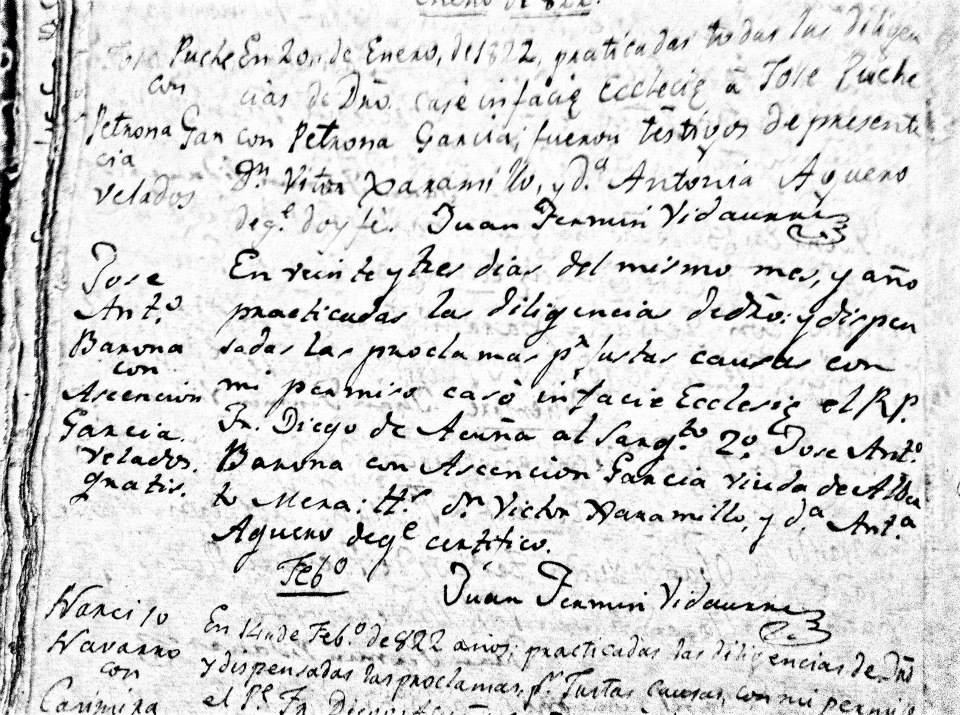 Enero de 822.
Jose Puche
con
Petrona Gar
cia
velados
En 20,, de Enero, de 1822, praticadas todas las diligen
cias de Dño. casè in facie Ecclecie à Jose Puche
con Petrona Garcia; fueron testigos de presente
Dn. Vitor Xaramillo, y d.a Antonia Aguero
de q.e doy fe. Juan Fermin Vidaurre
Jose
Ant.o
Barona
con
Ascencion
Garcia.
velados.
gratis.
En veinte y tres dias del mismo mes, y año
practicadas las diligencias de dño: y dispen
sadas las proclamas p.r justas causas con
mi permiso casò in facie Ecclesie el R.P.
Fr. Diego de Acuña al Sarg.to 2.o Jose Ant.o
Barona con Ascencion Garcia viuda de Alber
to Mena: tt.s d.n Victor Xaramillo, y d.a Ant.a
Aguero de q.e certifico.
Juan Fermin Vidaurre
Feb.o
Narciso
Navarro
con
Casimira
En 14,, de Feb.o de 822 años; practicadas las diligencias de Dño
y dispensadas las proclamas, p.r Justas causas, con mi permiso
el P.e Fr. Diego